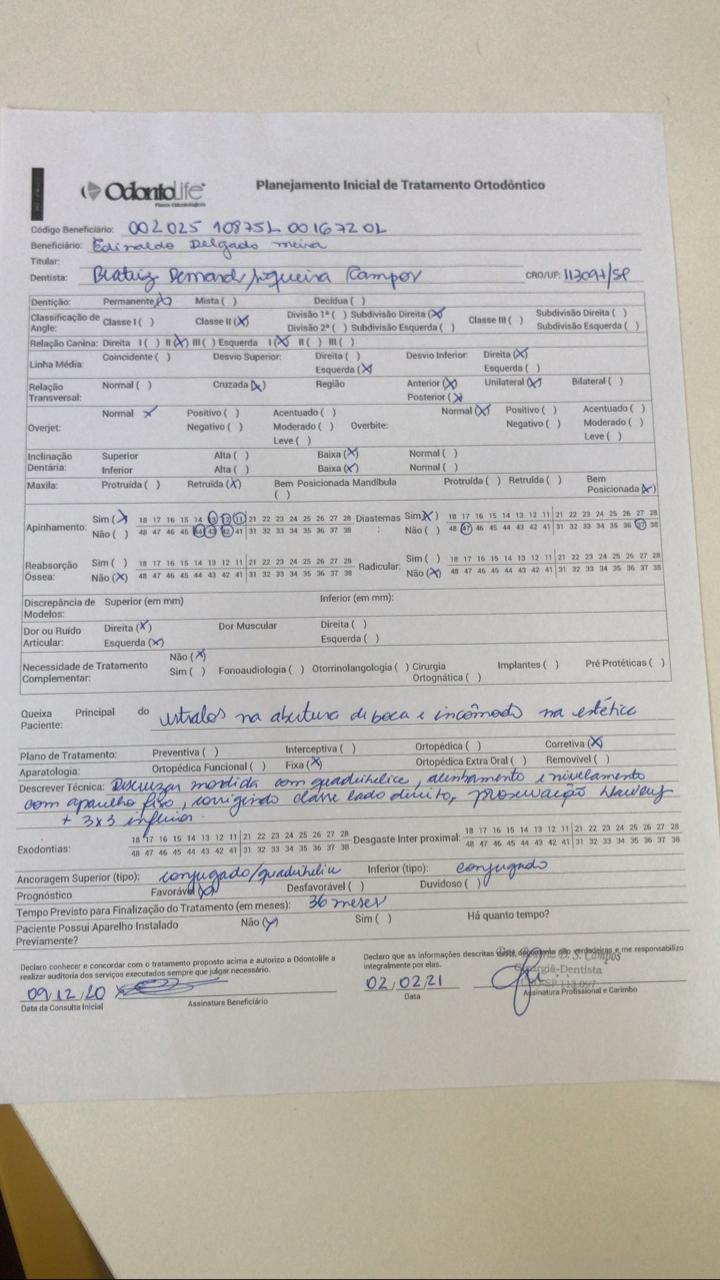 OdontoLife
Planos Odontológicos
Planejamento Inicial de Tratamento Ortodôntico
Código Beneficiário: 002025 108752 001672 02
Beneficiário: Edinaldo Delgado meira
Titular:
Dentista: Beatriz Siqueira Campos CRO/UF: 113097/SP
Dentição: Permanente (X) Mista ( ) Decídua ( )
Classificação de Angle: Classe I ( ) Classe II (X) Divisão 1ª ( ) Subdivisão Direita (X) Classe III ( ) Subdivisão Direita ( )
Divisão 2ª ( ) Subdivisão Esquerda ( ) Subdivisão Esquerda ( )
Relação Canina: Direita I ( ) II (X) III ( ) Esquerda I (X) II ( ) III ( )
Linha Média: Coincidente ( ) Desvio Superior: Direita ( ) Desvio Inferior: Direita (X)
Esquerda (X) Esquerda ( )
Relação Transversal: Normal ( ) Cruzada (X) Região Anterior (X) Unilateral (X) Bilateral ( )
Posterior (X)
Overjet: Normal X Positivo ( ) Acentuado ( ) Overbite: Normal (X) Positivo ( ) Acentuado ( )
Negativo ( ) Moderado ( ) Negativo ( ) Moderado ( )
Leve ( ) Leve ( )
Inclinação Dentária: Superior Alta ( ) Baixa (X) Normal ( )
Inferior Alta ( ) Baixa (X) Normal ( )
Maxila: Protruída ( ) Retruída (X) Bem Posicionada ( ) Mandíbula Protruída ( ) Retruída ( ) Bem Posicionada (X)
Apinhamento: Sim (X) 18 17 16 15 14 13 12 11 21 22 23 24 25 26 27 28 Diastemas Sim (X) 18 17 16 15 14 13 12 11 21 22 23 24 25 26 27 28
Não ( ) 48 47 46 45 44 43 42 41 31 32 33 34 35 36 37 38 : Não ( ) 48 47 46 45 44 43 42 41 31 32 33 34 35 36 37 38
Reabsorção Óssea: Sim ( ) 18 17 16 15 14 13 12 11 21 22 23 24 25 26 27 28 Radicular: Sim ( ) 18 17 16 15 14 13 12 11 21 22 23 24 25 26 27 28
Não (X) 48 47 46 45 44 43 42 41 31 32 33 34 35 36 37 38 Não (X) 48 47 46 45 44 43 42 41 31 32 33 34 35 36 37 38
Discrepância de Modelos: Superior (em mm) Inferior (em mm):
Dor ou Ruído Articular: Direita (X) Dor Muscular Direita ( )
Esquerda (X) Esquerda ( )
Necessidade de Tratamento Complementar: Não (X)
Sim ( ) Fonoaudiologia ( ) Otorrinolangologia ( ) Cirurgia Ortognática ( ) Implantes ( ) Pré Protéticas ( )
Queixa Principal do Paciente: estralos na abertura de boca e incômodo na estética
Plano de Tratamento: Preventiva ( ) Interceptiva ( ) Ortopédica ( ) Corretiva (X)
Aparatologia: Ortopédica Funcional ( ) Fixa (X) Ortopédica Extra Oral ( ) Removível ( )
Descrever Técnica: Descruzar mordida com quadrihelice, alinhamento e nivelamento
com aparelho fixo, corrigindo classe lado direito, proservação Hawley
+ 3x3 inferior.
Exodontias: 18 17 16 15 14 13 12 11 21 22 23 24 25 26 27 28 Desgaste Inter proximal: 18 17 16 15 14 13 12 11 21 22 23 24 25 26 27 28
48 47 46 45 44 43 42 41 31 32 33 34 35 36 37 38 48 47 46 45 44 43 42 41 31 32 33 34 35 36 37 38
Ancoragem Superior (tipo): conjugado/quadrihelice Inferior (tipo): conjugado
Prognóstico Favorável (X) Desfavorável ( ) Duvidoso ( )
Tempo Previsto para Finalização do Tratamento (em meses): 36 meses
Paciente Possui Aparelho Instalado Previamente? Não (X) Sim ( ) Há quanto tempo?
Declaro conhecer e concordar com o tratamento proposto acima e autorizo a Odontolife a
realizar auditoria dos serviços executados sempre que julgar necessário.
Declaro que as informações descritas verdadeiras e me responsabilizo
integralmente por elas.
D. S. Campos
Cirurgiã-Dentista
CRO-SP 113.097
09/12/20
Data da Consulta Inicial Assinatura Beneficiário
02/02/21
Data Assinatura Profissional e Carimbo